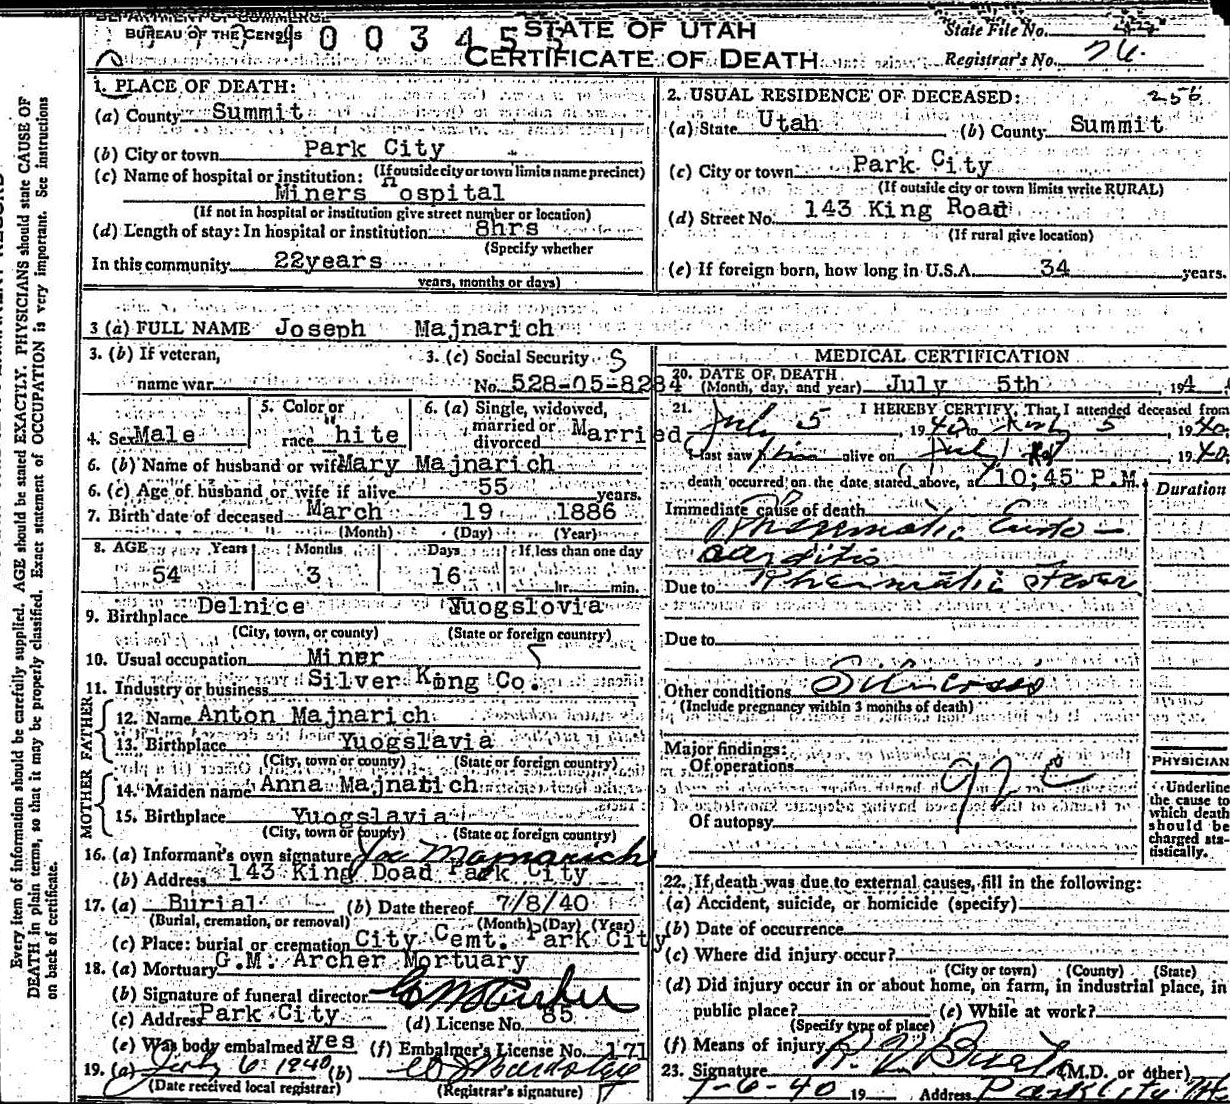 DEPARTMENT OF COMMERCE
BUREAU OF THE CENSUS
STATE OF UTAH
CERTIFICATE OF DEATH
State File No.
Registrar's No. 26
Every item of information should be carefully supplied. AGE should be stated EXACTLY. PHYSICIANS should state CAUSE OF
DEATH in plain terms, so that it may be properly classified. Exact statement of OCCUPATION is very important. See instructions
on back of certificate.
1. PLACE OF DEATH:
(a) County Summit
(b) City or town Park City
(If outside city or town limits name precinct)
(c) Name of hospital or institution:
Miners Hospital
(If not in hospital or institution give street number or location)
(d) Length of stay: In hospital or institution 8hrs
(Specify whether
In this community 22years
years, months or days)
2. USUAL RESIDENCE OF DECEASED: 256
(a) State Utah (b) County Summit
(c) City or town Park City
(If outside city or town limits write RURAL)
(d) Street No. 143 King Road
(If rural give location)
(e) If foreign born, how long in U.S.A. 34 years.
3 (a) FULL NAME Joseph Majnarich
3. (b) If veteran,
name war
3. (c) Social Security
No. 528-05-8284
4. Sex Male
5. Color or
race "hite
6. (a) Single, widowed,
married or
divorced Married
6. (b) Name of husband or wife Mary Majnarich
6. (c) Age of husband or wife if alive 55 years.
7. Birth date of deceased March 19 1886
(Month) (Day) (Year)
8. AGE Years Months Days If less than one day
54 3 16 hr. min.
9. Birthplace Delnice Yuogslovia
(City, town, or county) (State or foreign country)
10. Usual occupation Miner
11. Industry or business Silver King Co.
FATHER
12. Name Anton Majnarich
13. Birthplace Yuogslavia
(City, town or county) (State or foreign country)
MOTHER
14. Maiden name Anna Majnarich
15. Birthplace Yuogslavia
(City, town or county) (State or foreign country)
16. (a) Informant's own signature Joe Majnarich
(b) Address 143 King Doad Park City
17. (a) Burial (b) Date thereof 7/8/40
(Burial, cremation, or removal) (Month) (Day) (Year)
(c) Place: burial or cremation City Cemt. Park City
18. (a) Mortuary G.M. Archer Mortuary
(b) Signature of funeral director
(c) Address Park City (d) License No. 85
(e) Was body embalmed yes (f) Embalmer's License No. 171
19. (a) July 6 1940 (b)
(Date received local registrar) (Registrar's signature)
MEDICAL CERTIFICATION
20. DATE OF DEATH
(Month, day, and year) July 5th 194
21. I HEREBY CERTIFY, That I attended deceased from
July 5 1940 to July 5, 1940
I last saw him alive on July 1940
death occurred on the date stated above, at 10;45 P.M.
Duration
Immediate cause of death
Rheumatic Endo-
carditis
Due to Rheumatic Fever
Due to
Other conditions Silicosis
(Include pregnancy within 3 months of death)
Major findings:
Of operations
Of autopsy
PHYSICIAN
Underline
the cause to
which death
should be
charged sta-
tistically.
22. If death was due to external causes, fill in the following:
(a) Accident, suicide, or homicide (specify)
(b) Date of occurrence
(c) Where did injury occur?
(City or town) (County) (State)
(d) Did injury occur in or about home, on farm, in industrial place, in
public place? (e) While at work?
(Specify type of place)
(f) Means of injury
23. Signature (M.D. or other)
7-6-40 19 Address Park City